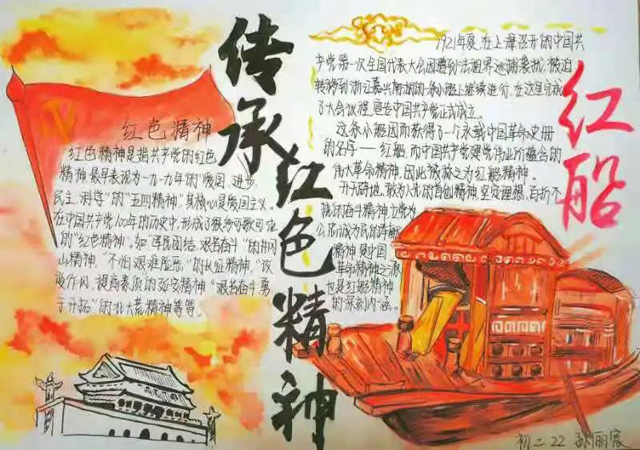 传承红色精神
红色精神
红色精神是指共产党的红色
精神最早表现为一九一九年的"爱国、进步、
民主、科学"的"五四精神"其核心是爱国主义。
在中国共产党100年的历史中,形成了很多可歌可泣
的"红色精神"。如"军民团结、艰苦奋斗"的井冈
山精神,"不怕艰难险恶"的长征精神,
的延安精神"艰苦奋斗勇
于开拓"的北大荒精神等等。
红船
1921年夏,在上海召开的中国共
产党第一次全国代表大会因遭到法租界巡捕袭扰,被迫
转移到浙江嘉兴南湖的一条小船上继续进行,在这里完成
了大会议程,宣告中国共产党正式成立。
这条小船因而获得了一个永载中国革命史册
的名字——红船,而中国共产党建党伟业所蕴含的
伟大革命精神,因此被称之为红船精神。
开天辟地、敢为人先的首创精神,坚定理想、百折不
挠的奋斗精神,立党为
公、忠诚为民的奉献
精神是中国
革命精神之源
也是红船精神
的深刻内涵。
初二.22